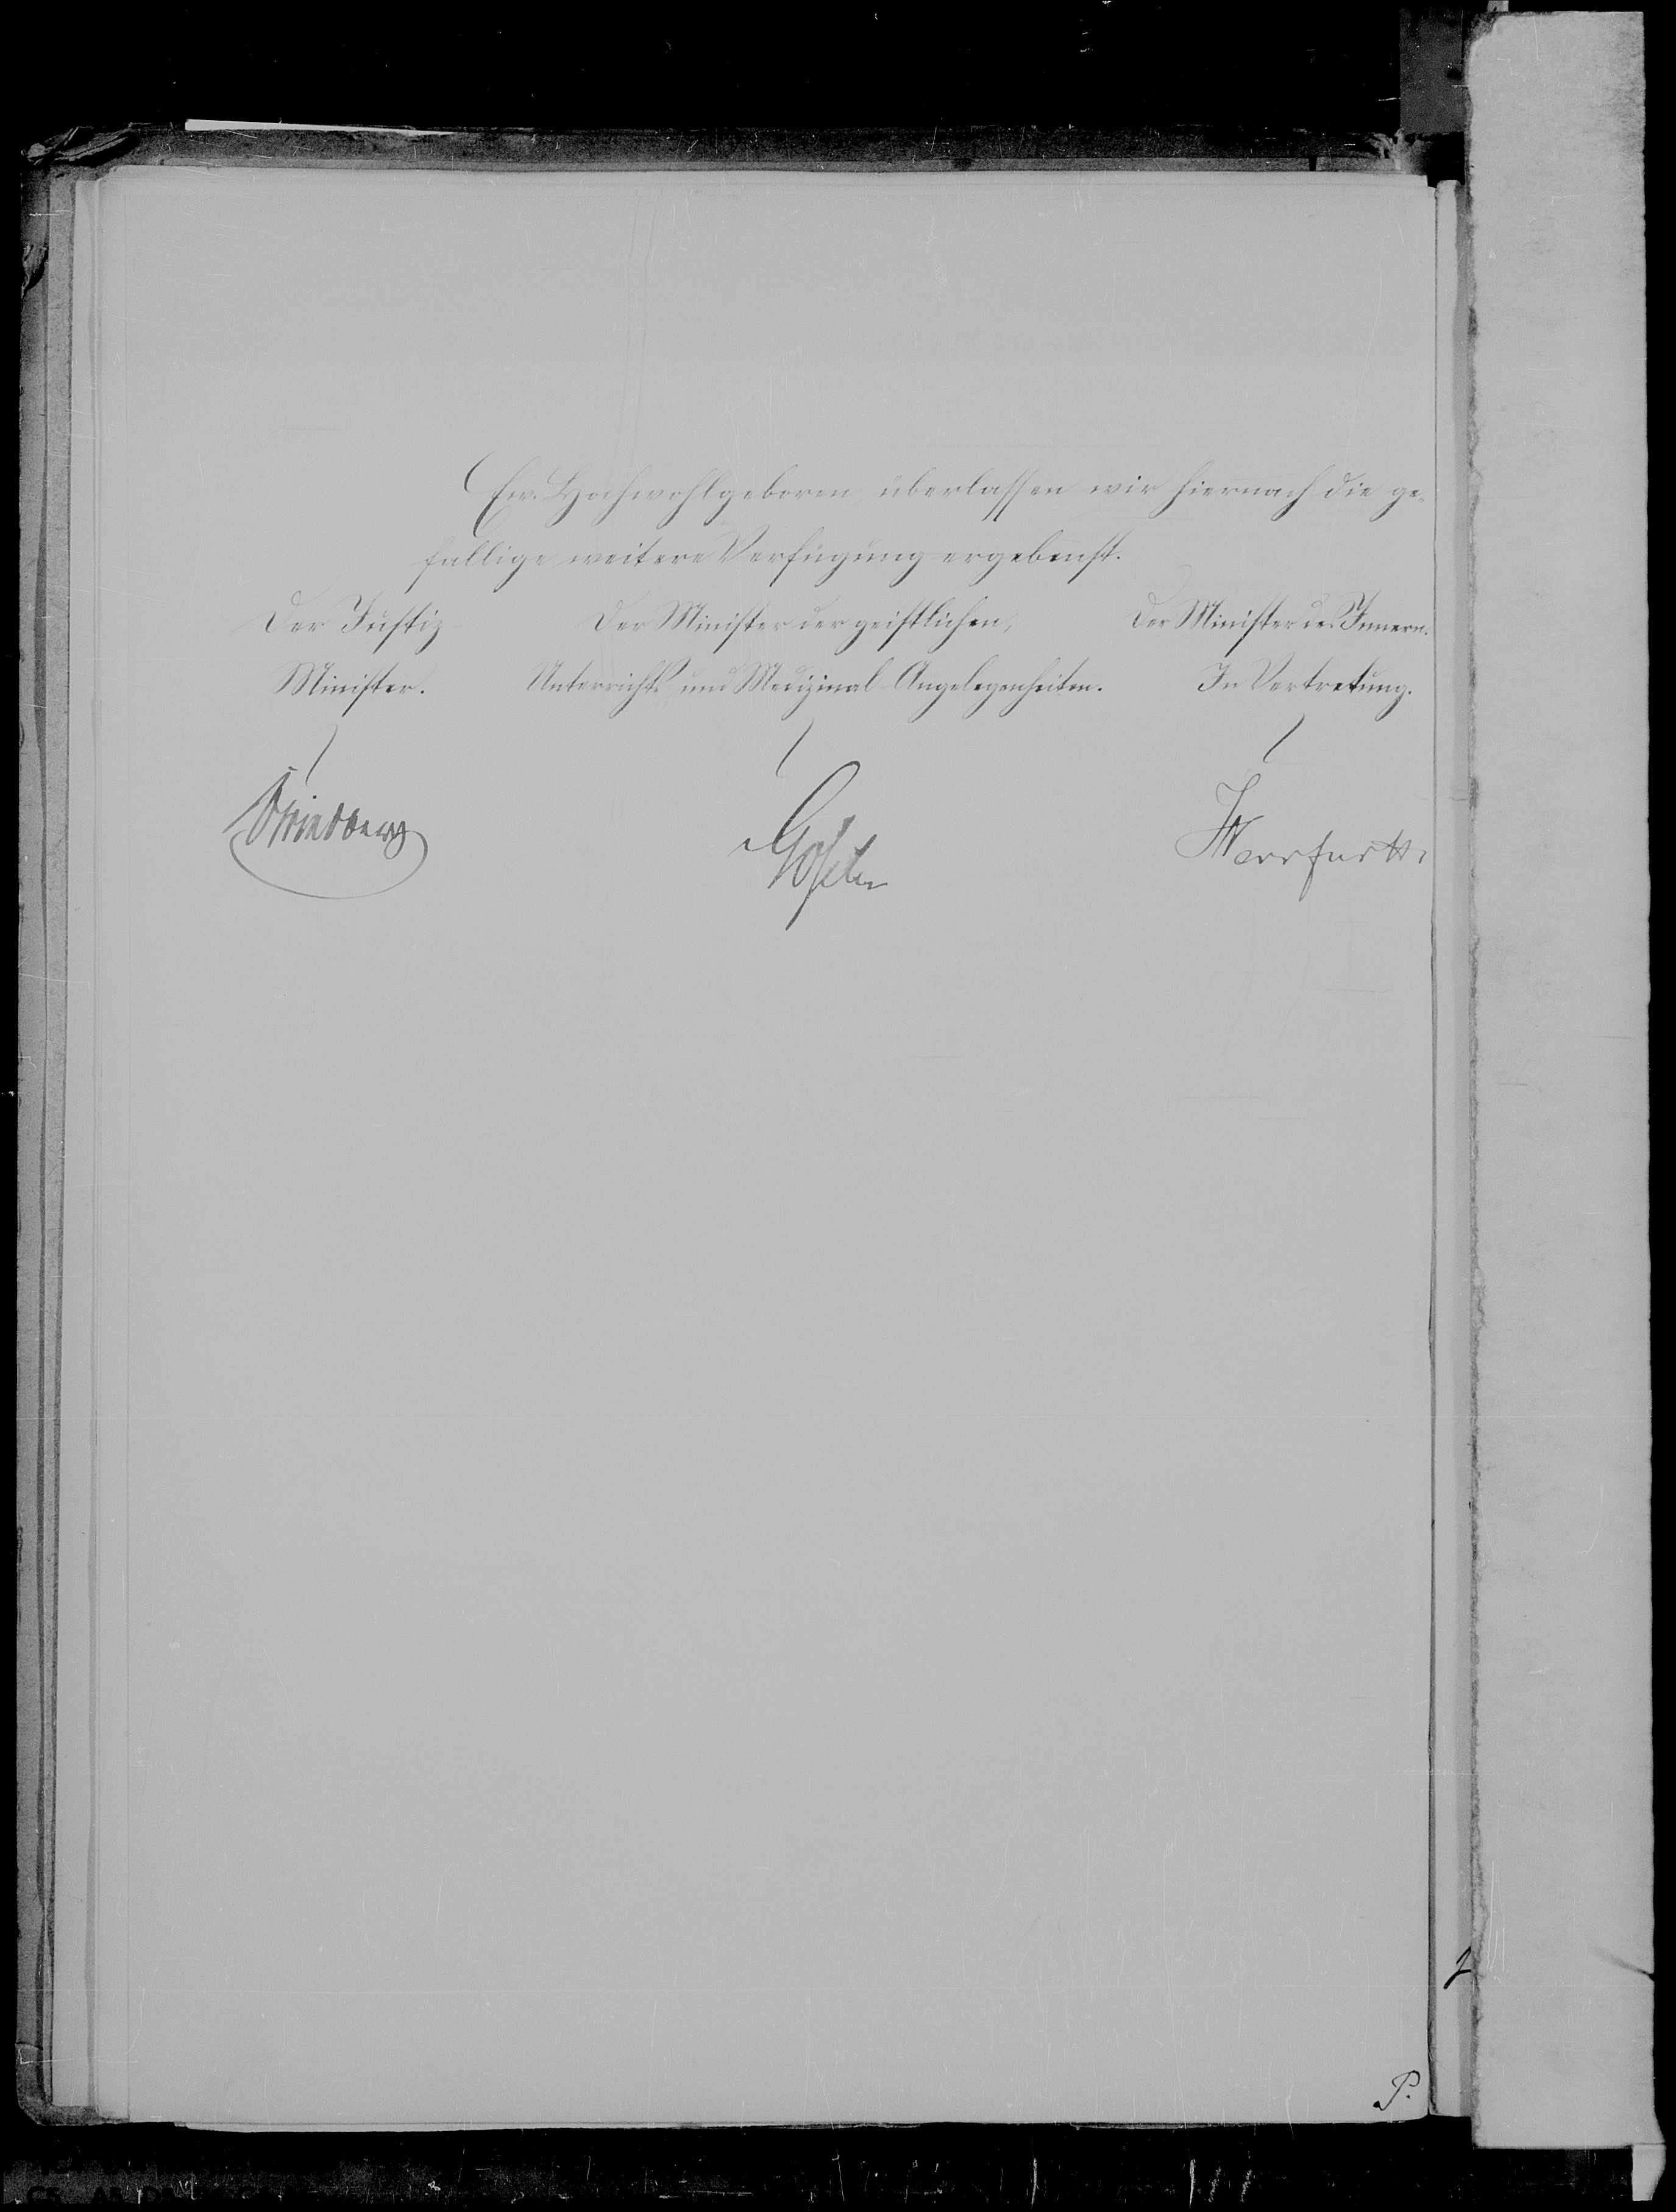 Ew. Hochwohlgeboren überlassen wir hiernach die ge-
fällige weitere Verfügung ergebenst.
Der Justiz Der Minister der geistlichen, Der Minister des Innern.
Minister. Unterrichts und Medizinal-Angelegenheiten. In Vertretung.
Friedberg Goßler Herrfurth.
P.